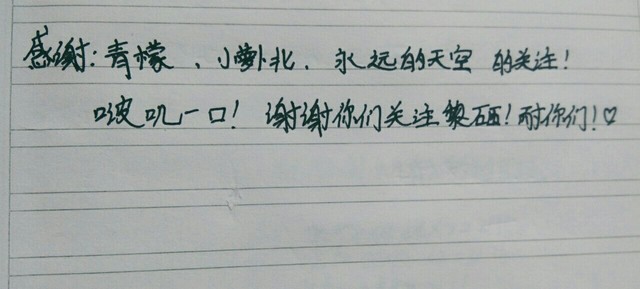 感谢：青檬、小萝北、永远的天空 的关注！
啵叽一口！谢谢你们关注黎硒！耐你们！♡